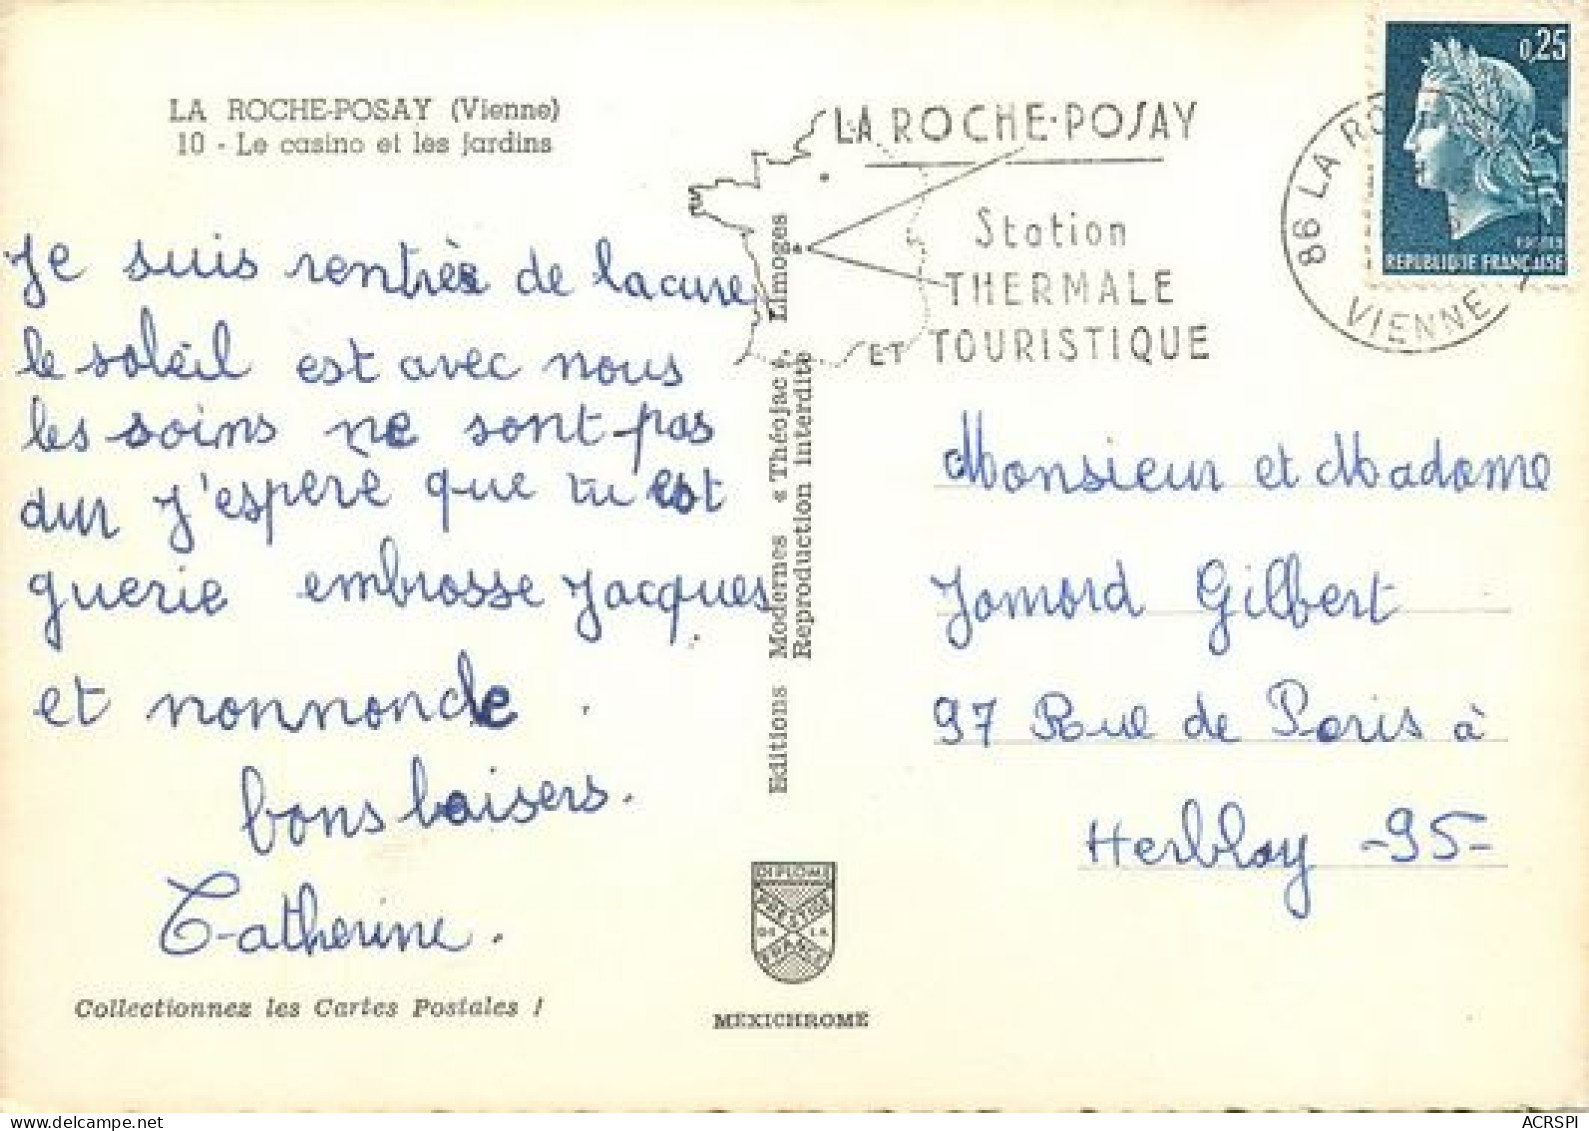 LA ROCHE-POSAY (Vienne)
10 - Le casino et les jardins
Je suis rentrés de la cure
le soleil est avec nous
les soins ne sont pas
dur J'espere que tu est
guerie embrasse Jacques
et nonnoncle .
bons baisers.
Catherine.
Collectionnez les Cartes Postales !
Editions Modernes « Théojac », Limoges
Reproduction interdite
DIPLOME
PRESTIGE
DE LA
FRANCE
MEXICHROME
LA ROCHE-POSAY
Station
THERMALE
ET TOURISTIQUE
86 LA RO
VIENNE
0,25
REPUBLIQUE FRANÇAISE
Monsieur et Madame
Jamard Gilbert
97 Rue de Paris à
Herblay -95-
ACRSPI